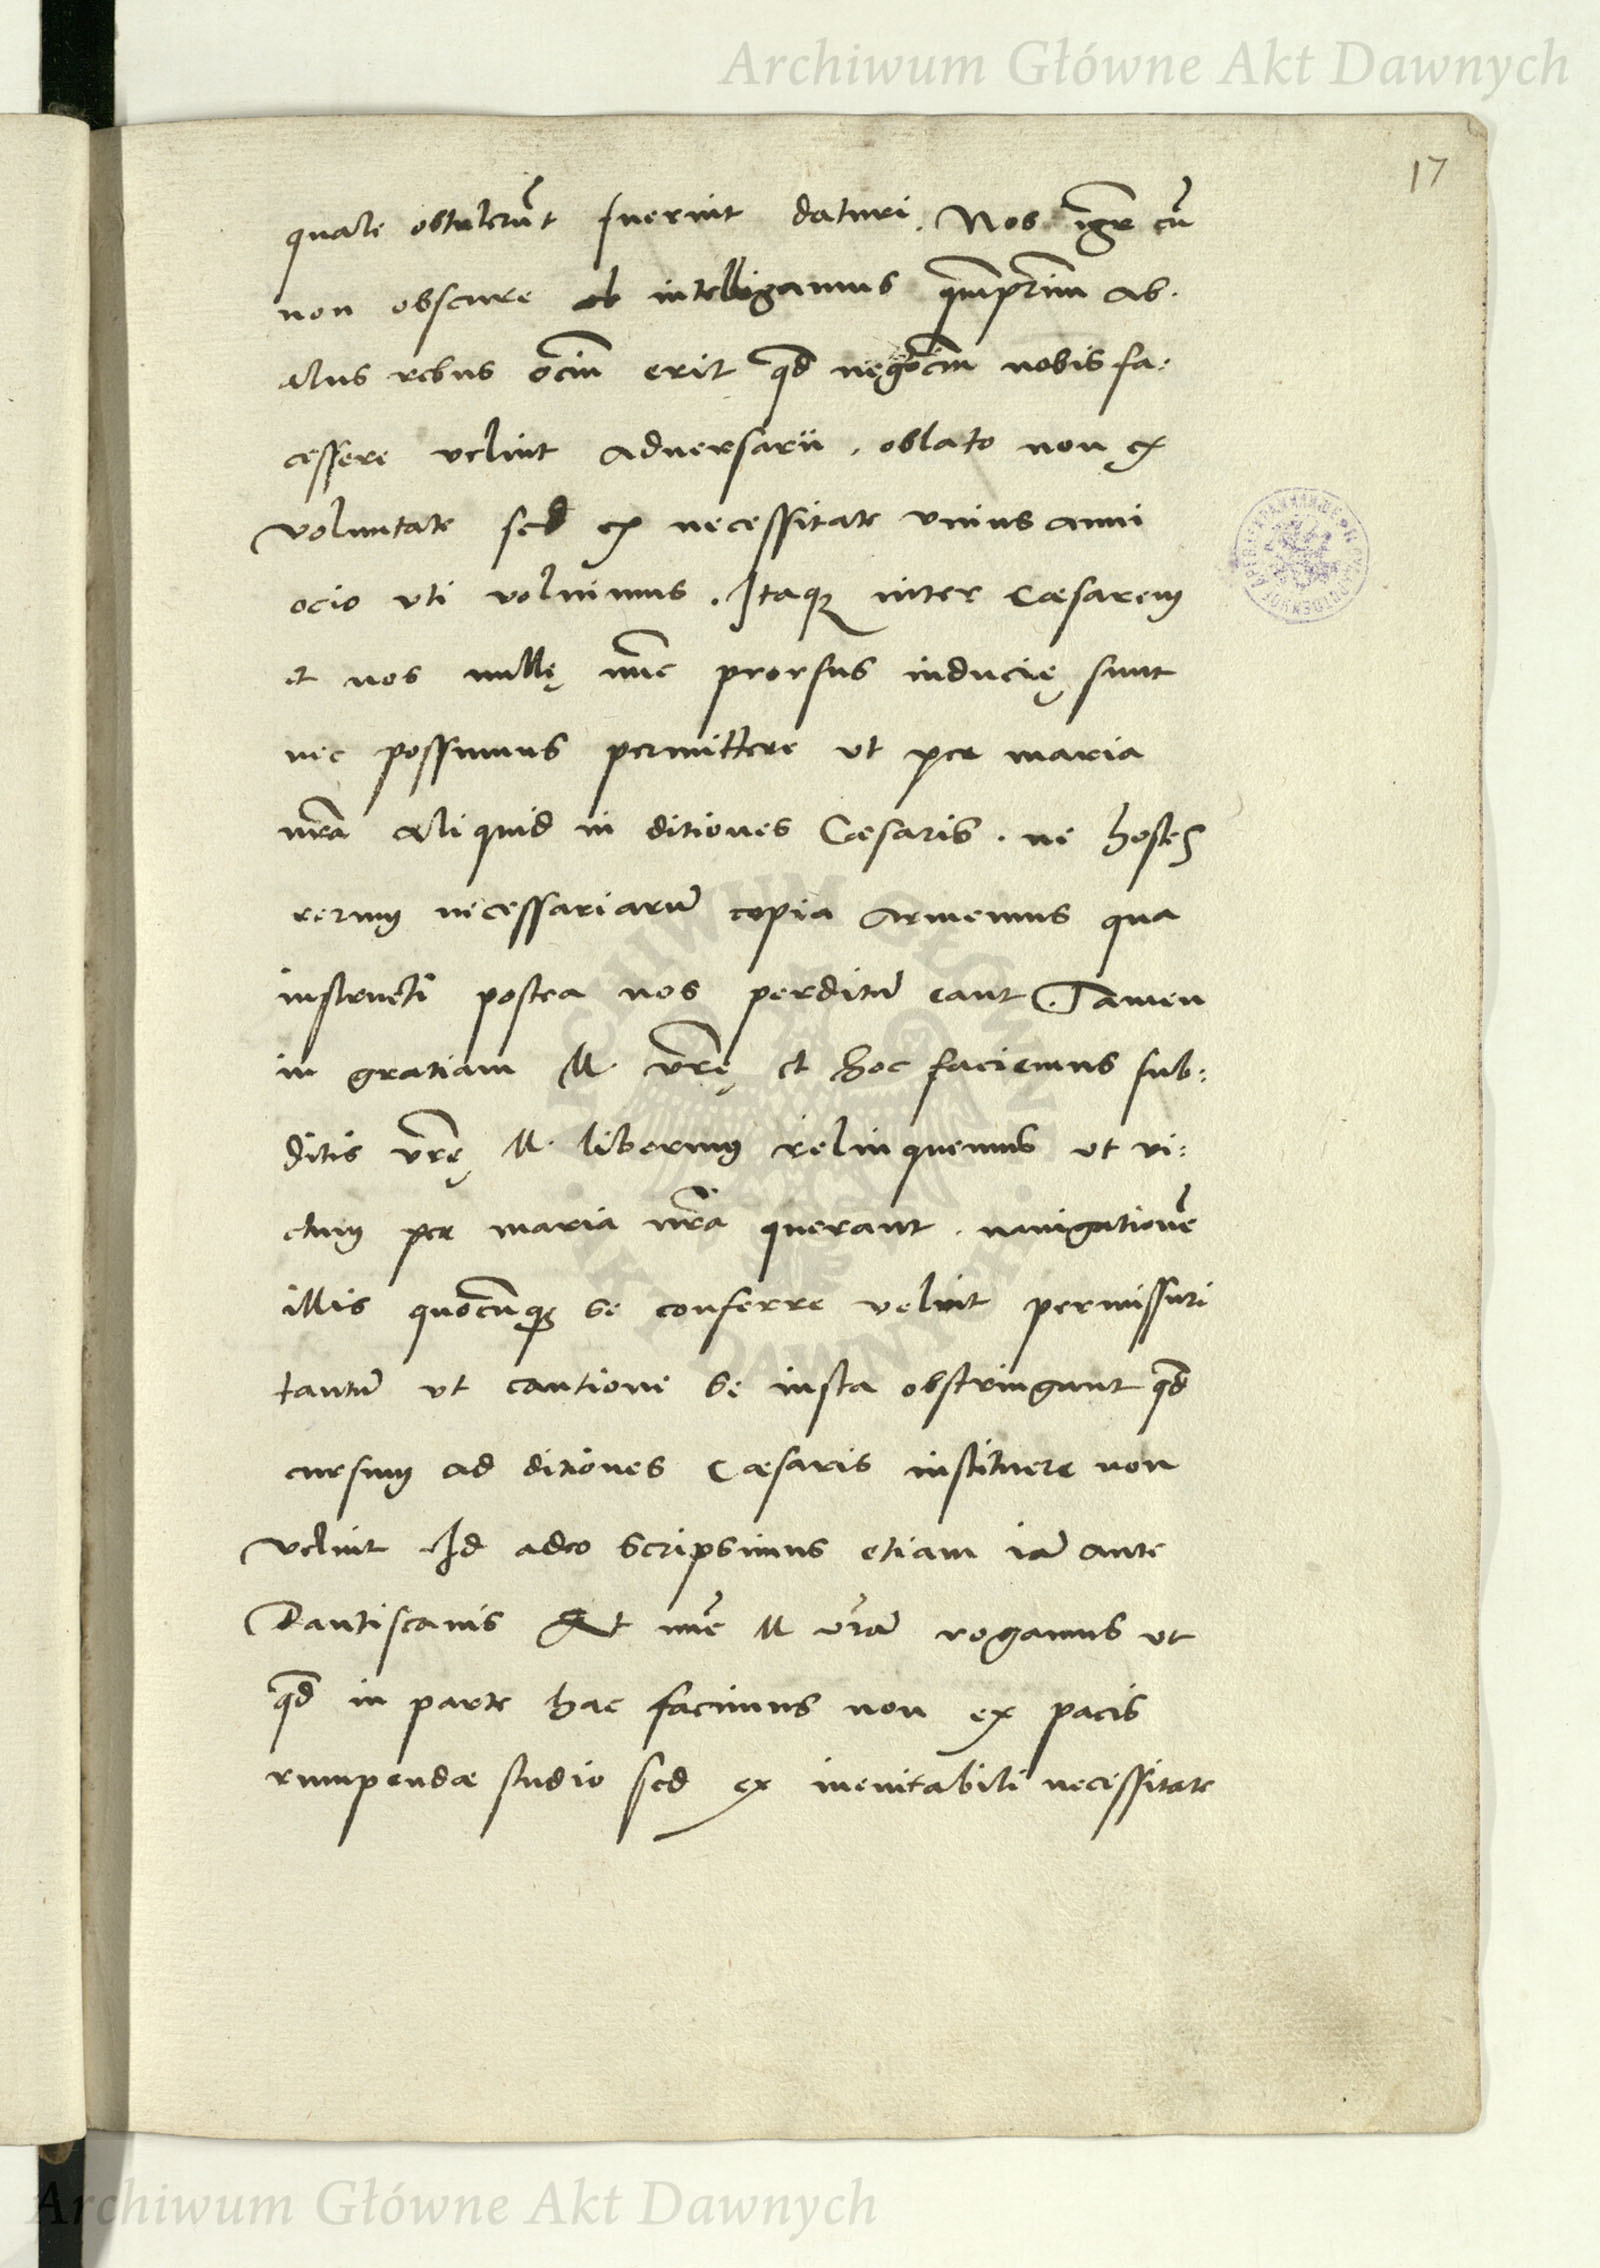 Archiwum Główne Akt Dawnych
17
quale obtulerūt fuerint daturi. Nos igr̄ cū
non obscure intelligamus q̄mprim̄ ab.
alijs rebus ociū erit qd̄ negociū nobis fa:
cessere velint adversarii. oblato non ex
voluntate sed ex necessitate vnius anni
ocio vti voluimus. Itaq; inter Cæsarem
et nos nullę nūc prorsus inducię sunt
nec possumus permittere vt per maria
nr̄a aliquid in ditiones Cæsaris. ne hostes
rerum necessariarū copia armemus qua
instructi postea nos perditū eant. Tamen
in gratiam M. vr̄ę et hoc faciemus sub:
ditis vr̄ę M. liberum relinquemus vt vi:
ctum per maria nr̄a querant. nauigationē
illis quocūq; se conferre velint permissuri
tantū vt cautione se iusta obstringant qd̄
cursum ad ditiones Cæsaris instituere non
velint Id adeo scripsimus etiam iā ante
Dantiscanis Et nūc M vr̄ā rogamus vt
qd̄ in parte hac facimus non ex pacis
rumpendæ studio sed ex ineuitabili necessitate
Archiwum Główne Akt Dawnych